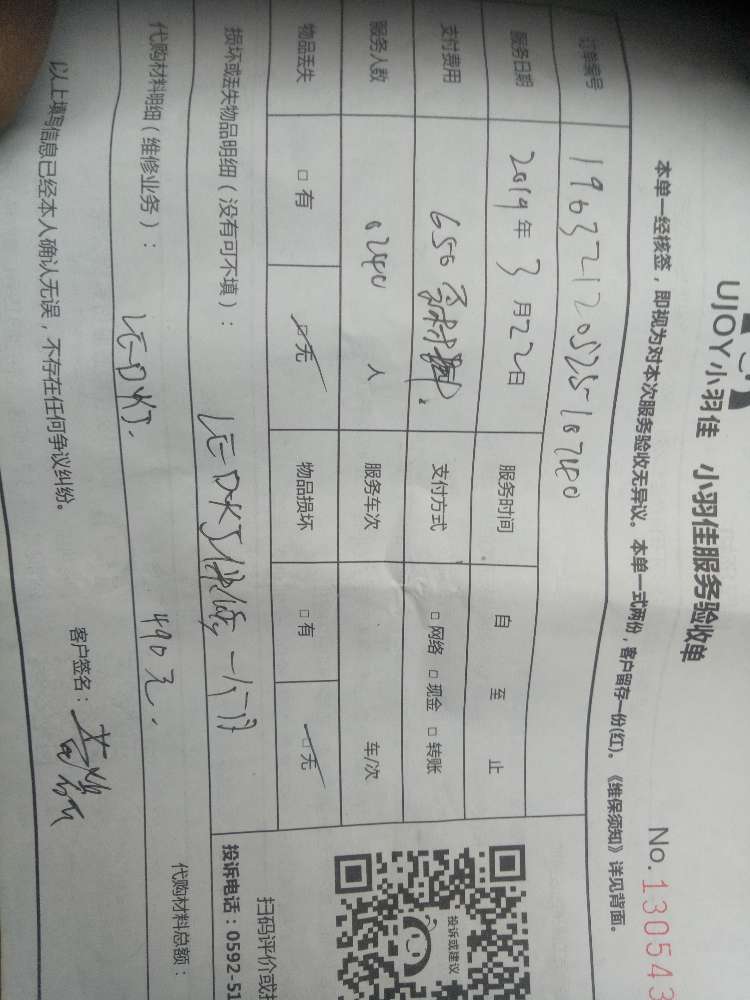 UJOY小羽佳 小羽佳服务验收单
No.130543
本单一经核签，即视为对本次服务验收无异议。本单一式两份，客户留存一份(红)。《维保须知》详见背面。
订单编号 19632120525-10740
服务日期 2019年3月22日 服务时间 自 至 止
支付费用 650 支付方式 □网络 □现金 □转账
服务人数 人 服务车次 车/次
物品丢失 □有 □无 物品损坏 □有 □无
损坏或丢失物品明细（没有可不填）：
LED灯
代购材料明细（维修业务）： LED灯. 490元. 代购材料总额：
以上填写信息已经本人确认无误，不存在任何争议纠纷。 客户签名：
投诉或建议
扫码评价或投
投诉电话：0592-51